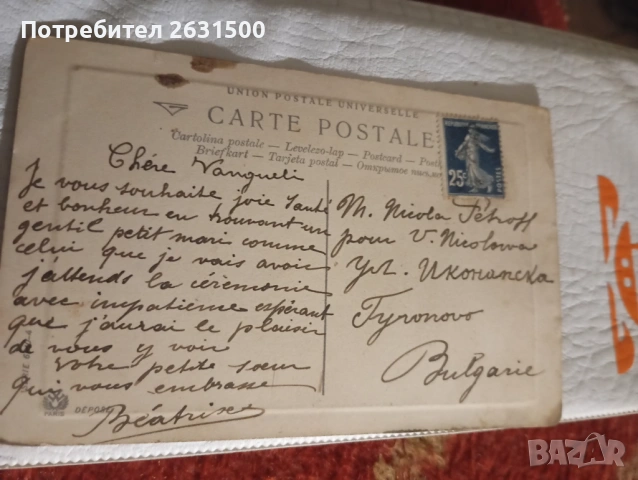 Потребител 2631500
UNION POSTALE UNIVERSELLE
CARTE POSTALE
Cartolina postale — Levelezo-lap — Postcard —
Briefkart — Tarjeta postal — Открытое
25c
POSTES
Chére Vangueli
Je vous souhaite joie santé
et bonheur en trouvant un
gentil petit mari comme
celui que je vais avoir
j'attends la cérémonie
avec impatience espérant
que j'aurai le plaisir
de vous y voir
votre petite sœur
qui vous embrasse
Béatrise
M. Nicola Pétroff
pour V. Nicolowa
Ул. Иконапска
Tyronovo
Bulgarie
PARIS
DÉPOSÉ
BAZAR
bg